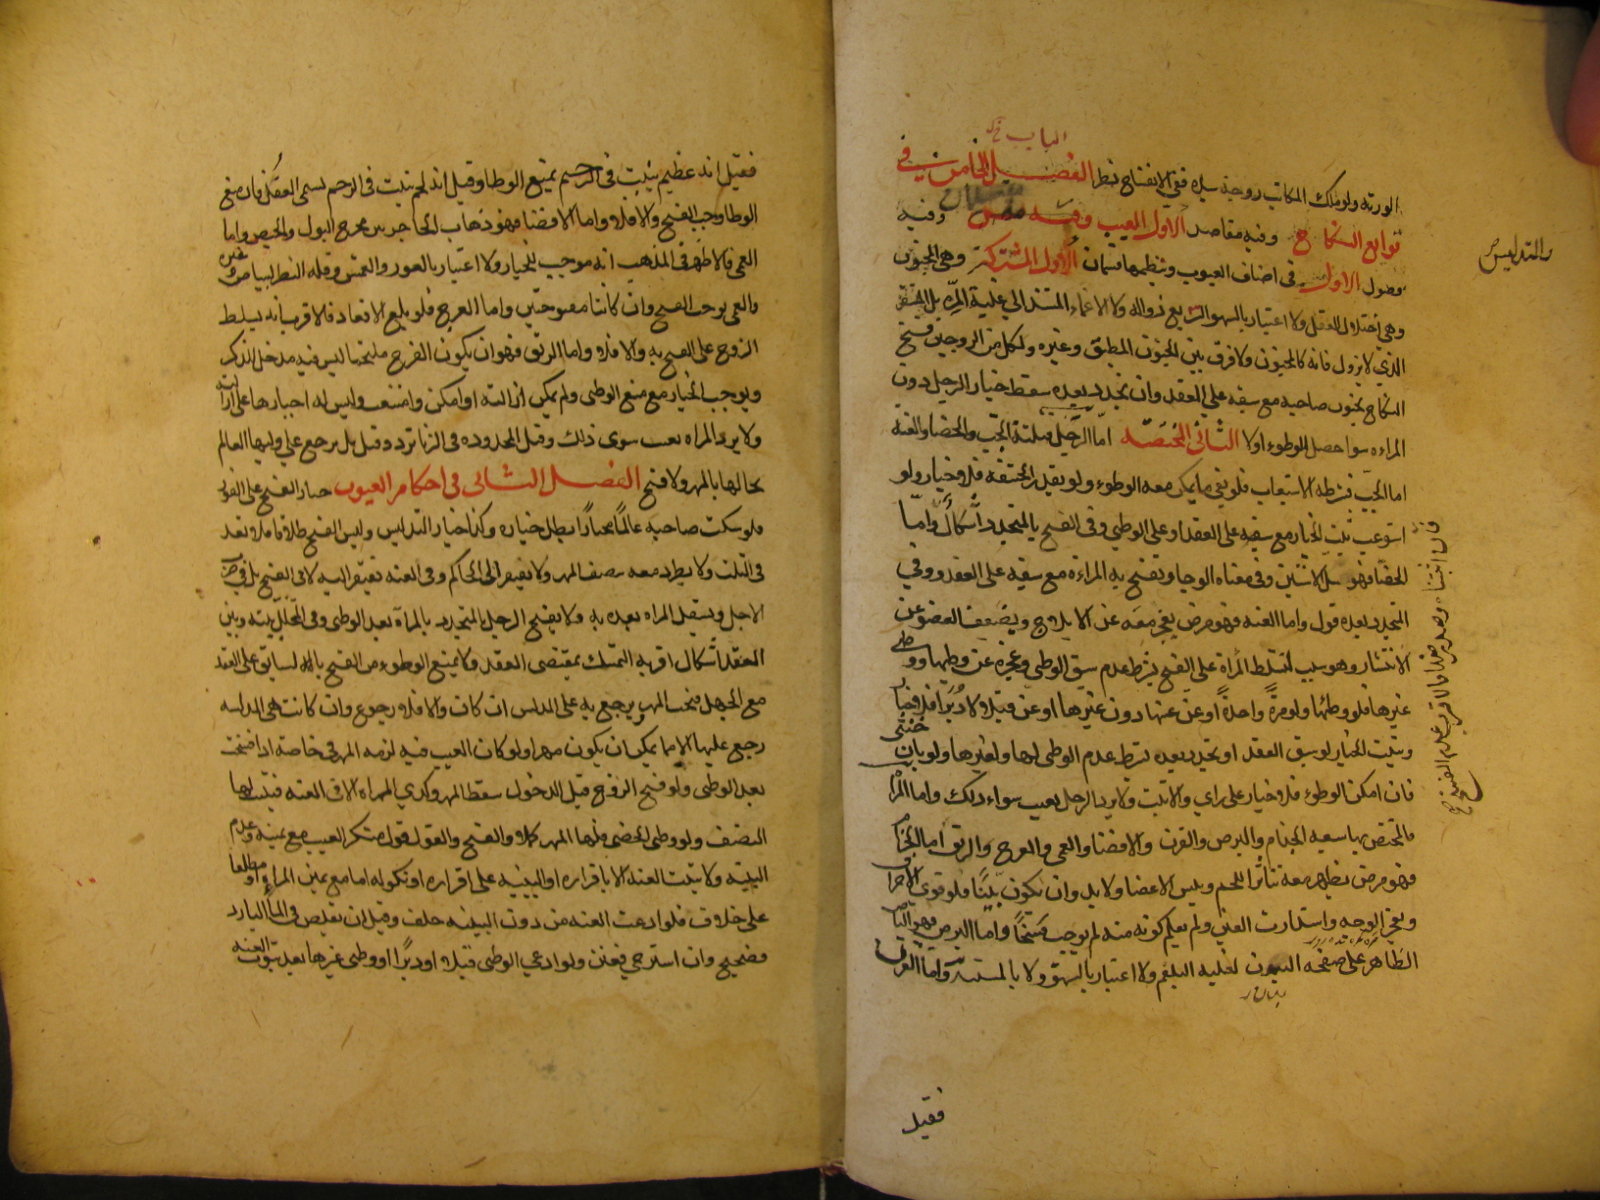 الباب
الورثه ولو ملك المكاتب زوجة سيده ففي الانفساخ نظر الفصل الخامس في
توابع النكاح وفيه مقاصد الاول العيب وفيه فصلان وفيه
فصول الاول في اصناف العيوب وينظمها قسمان الاول المشتركة وهي الجنون
وهي اختلال العقل ولا اعتبار بالسهو السريع زواله ولا الاغماء المستند الى غلبة المرة بل المستقر
الذي لا يزول فانه كالجنون ولا فرق بين الجنون المطبق وغيره ولكل من الزوجين فسخ
النكاح بجنون صاحبه مع سبقه على العقد وان تجدد بعده سقط خيار الرجل دون
المراءه سوا حصل الوطوء اولا الثاني المختصة اما الرجل فثلثة الجب والخصا والعنة
اما الجب فشرطه الاستيعاب فلو بقي ما يمكن معه الوطوء ولو بقدر الحشفة فلا خيار ولو
استوعب ثبت الخيار مع سبقه على العقد او على الوطي وفي الفسخ بالمتجدد اشكال واما
الخصا فهو سل الانثيين وفي معناه الوجا وتفسخ به المراءة مع سبقه على العقد وفي
المتجدد بعده قول واما العنة فهو مرض يعجز معه عن الايلاج ويضعف العضو عن
الانتشار وهو سبب لتسلط المراة على الفسخ بشرط عدم سبق الوطي وعجزه عن وطيها ووطي
غيرها فلو وطئها ولو مرةً واحدةً او عن عنها دون غيرها او عن قبلا لا دبرا فلا خيار
ويثبت الخيار لو سبق العقد او تجدد بعده بشرط عدم الوطي لها ولغيرها ولو بان خنثى
فان امكن الوطوء فلا خيار على راي والا ثبت ولا يرد الرجل بعيب سوا ذلك واما المراة
فالمختص بها سبعه الجذام والبرص والقرن والافضا والعمى والعرج والرتق اما الجذام
فهو مرض يظهر معه تناثر اللحم ويبس الاعضا ولا بد وان يكون بيّنًا فلو قوي الاحراق
وتعجر الوجه واستدارت العين ولم يعلم كونه منه لم يوجب فسخًا واما البرص فهو البياض
الظاهر على صفحة البدن لغلبة البلغم ولا اعتبار بالبهق ولا بالمشتبه واما القرن
والتدليس
فقيل
فقيل انه عظم ينبت في الرحم يمنع الوطا وقيل انه لحم ينبت في الرحم يسمى العفل فان منع
الوطا وجب الفسخ والا فلا واما الافضا فهو ذهاب الحاجز بين مخرج البول والحيض واما
العمى فالاظهر في المذهب انه موجب للخيار ولا اعتبار بالعور والعمش وقله النظر لبياض وغيره
والعمى يوجب الفسخ وان كانتا مفتوحتين واما العرج فلو بلغ الاقعاد فالاقرب انه يسلط
الزوج على الفسخ به والا فلا واما الرتق فهو ان يكون الفرج ملتحما ليس فيه مدخل للذكر
ويوجب الخيار مع منع الوطي ولم يمكن ازالته او امكن وامتنعت وليس له اجبارها على ازالته
ولا يرد المراه بعيب سوى ذلك وقيل المحدوده في الزنا ترد وقيل بل يرجع على وليها العالم
بحالها بالمهر ولا فسخ الفصل الثاني في احكام العيوب خيار الفسخ على الفور
فلو سكت صاحبه عالمًا مختارًا بطل خياره وكذا خيار التدليس وليس الفسخ طلاقا فلا يعد
في الثلث ولا يطرد معه نصف المهر ولا يفتقر الى الحاكم وفي العنه تفتقر اليه لا في الفسخ بل في ضرب
الاجل وتستقل المراه بعده به ولا يفسخ الرجل بالمتجدد بالمرأة بعد الوطي وفي المتخلل بينه وبين
العقد اشكال اقربه التمسك بمقتضى العقد ولا يمنع الوطوء من الفسخ بالعيب السابق على العقد
مع الجهل فيجب المهر ويرجع به على المدلس ان كان والا فلا رجوع وان كانت هي المدلسه
رجع عليها الا بما يمكن ان يكون مهرا ولو كان العيب فيه لزمه المهر في خاصه اذا فسخت
بعد الوطي ولو فسخ الزوج قبل الدخول سقط المهر وكذي المراه الا في العنه فيثبت لها
النصف ولو وطي الخصي فلها المهر كملا والفسخ والقول قول منكر العيب مع يمينه وعدم
البينه ولا يثبت العنه الا باقراره او البينه على اقراره او نكوله اما مع يمين المراة او مطلقا
على خلاف فلو ادعت العنه من دون البينه حلف وقيل ان تقلص في الماء البارد
فصحيح وان استرخي فعنين ولو ادعي الوطي قبلا او دبرًا او وطي غيرها بعد ثبوت العنه